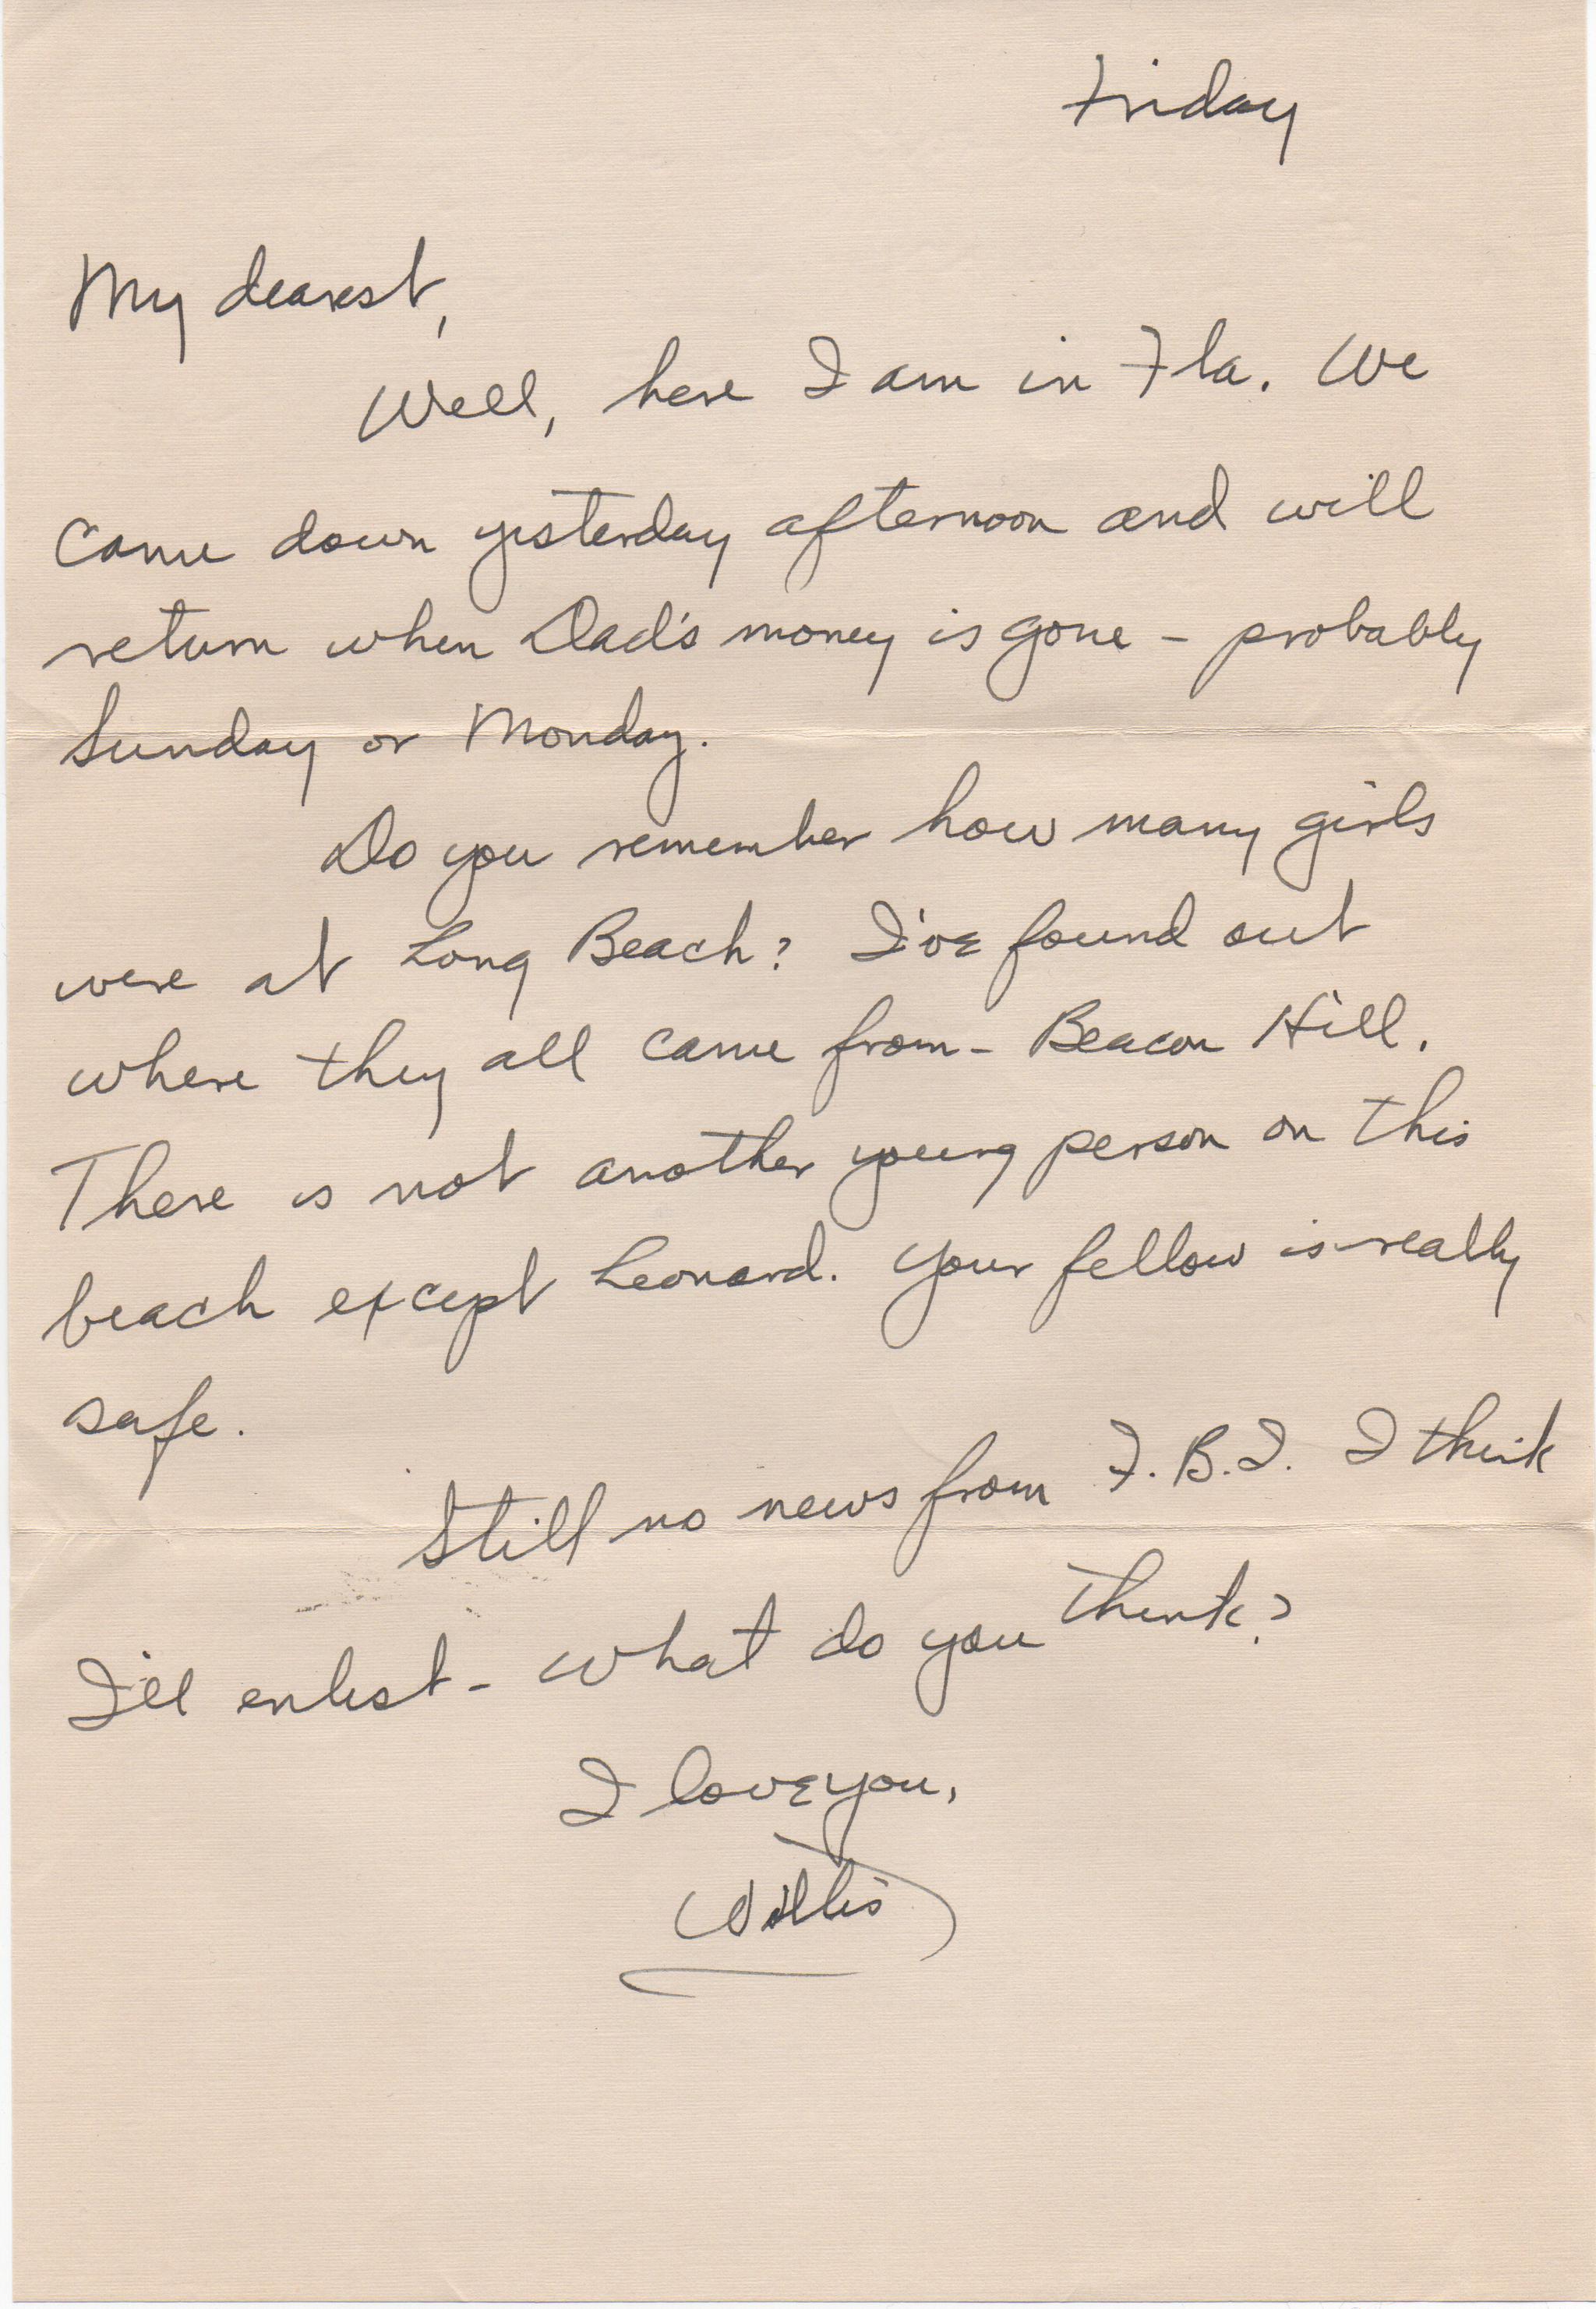 Friday
My dearest,
Well, here I am in Fla. We
came down yesterday afternoon and will
return when Dad's money is gone - probably
Sunday or Monday.
Do you remember how many girls
were at Long Beach? I've found out
where they all came from - Beacon Hill.
There is not another young person on this
beach except Leonard. Your fellow is really
safe.
Still no news from F.B.I. I think
I'll enlist - what do you think?
I love you,
Willis